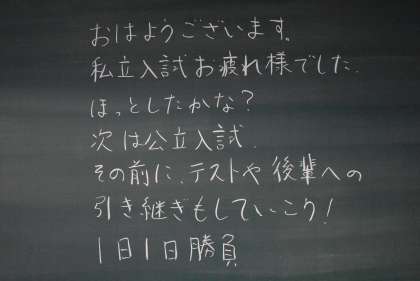 おはようございます。
私立入試お疲れ様でした.
ほっとしたかな?
次は公立入試.
その前に、テストや後輩への
引き継ぎもしていこう!
1日1日勝負